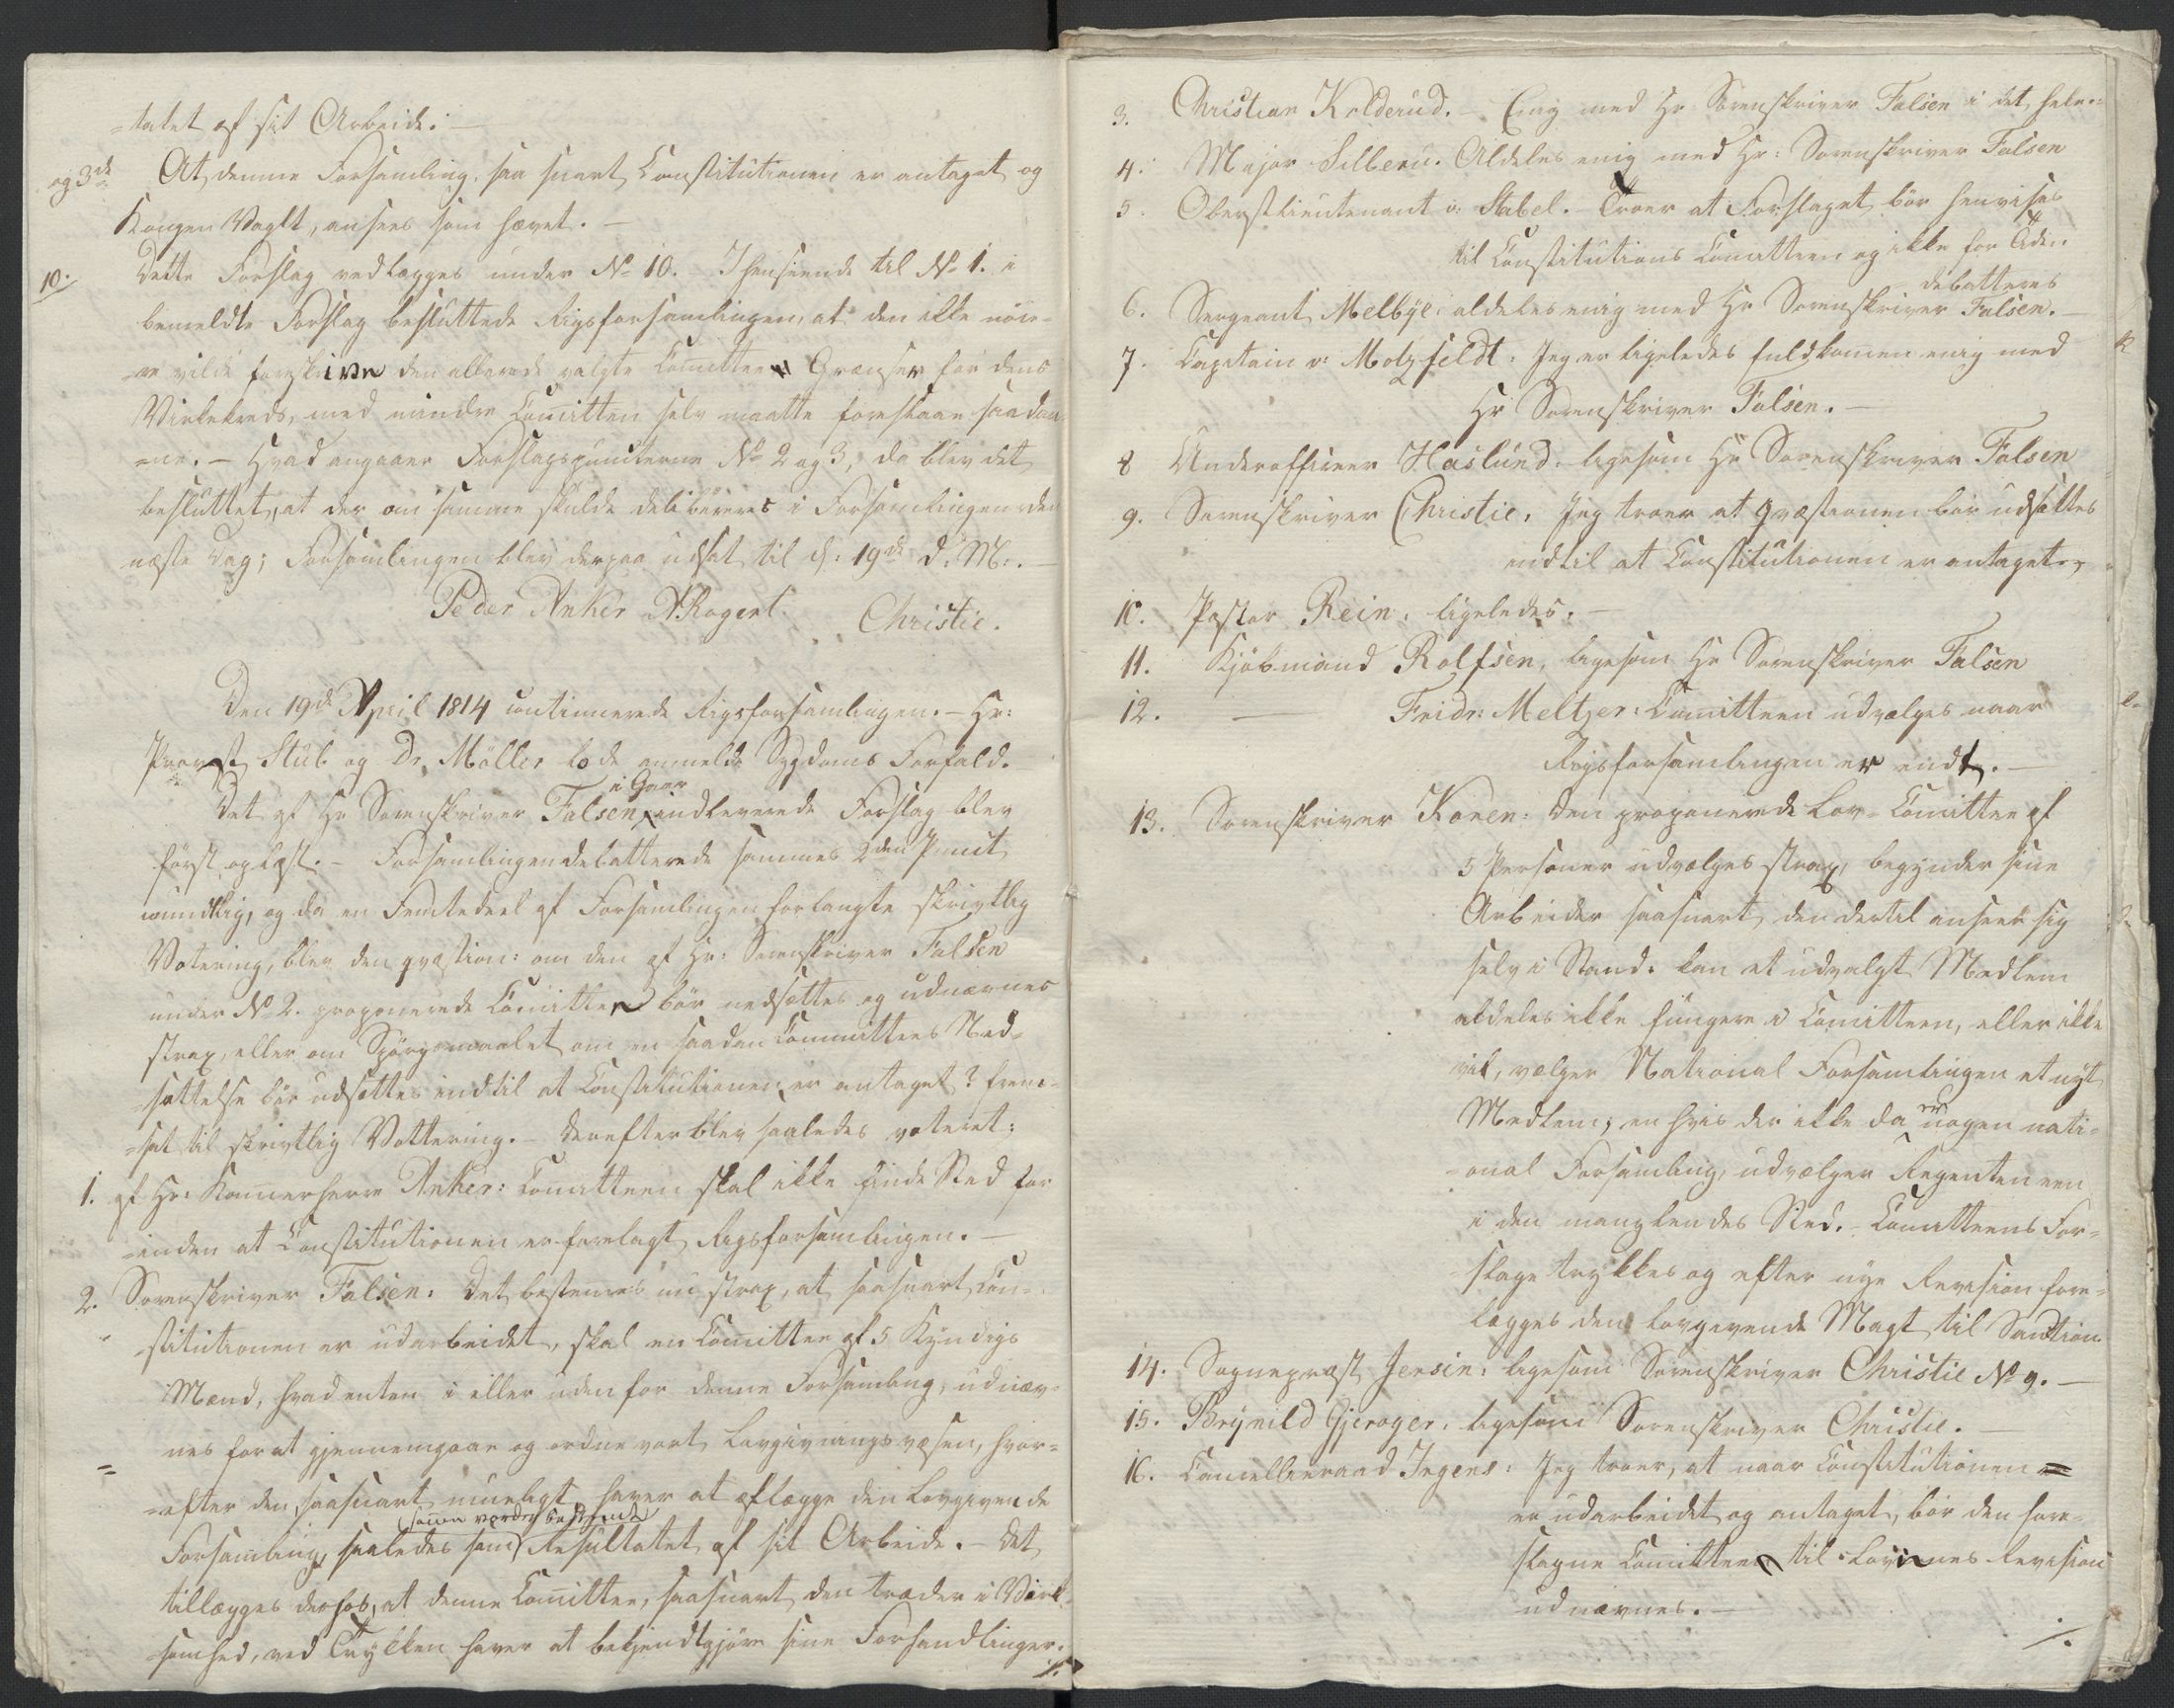 -tatet af sit Arbeide. —
og 3de At denne Forsamling, saa snart Constitutionen er antaget og
Kongen Valgt, ansees som hævet. —
10. Dette Forslag vedlægges under No 10. I henseende til No 1. i
bemeldte Forslag besluttede Rigsforsamlingen, at den ikke nöie-
-re vilde foreskrive den allerede valgte Comitteen Grænser for dens
Virkekreds, med mindre Comitteen selv maatte foreslaae saadan-
-ne. — Hvad angaaer Forslagspuncterne No 2 og 3, da blev det
besluttet, at der om samme skulde delibereres i Forsamlingen den
næste Dag; Forsamlingen blev derpaa udsat til d: 19de d: M:. —
Peder Anker D Hegerm Christie.
Den 19de April 1814 continuerede Rigsforsamlingen. — Hr:
Provst Stub og Dr. Möller lode anmelde Sygdoms Forfald.
i Gaar
Det af Hr Sorenskriver Falsen indleverede Forslag blev
först oplæst. — Forsamlingen debatterede sammes 2den Punct
mundtlig, og da en Femtedeel af Forsamlingen forlangte skrivtlig
Votering, blev den qvæstion: om den af Hr: Sorenskriver Falsen
under No 2. proponerede Comittee bör nedsættes og udnævnes
strax, eller om Spörgsmaalet om en saadan Committees Ned-
-sættelse bör udsættes indtil at Constitutionen er antaget? frem-
-sat til skrivtlig Vottering. — Derefter blev saaledes voteret:
1. af Hr: Kammerherre Anker: Comitteen skal ikke finde Sted for
-inden at Constitutionen er forelagt Rigsforsamlingen. —
2. Sorenskriver Falsen: Det bestemmes nu strax, at saasnart Con-
-stitutionen er udarbeidet, skal en Comittee af 5 Kyndige
Mænd, hvad enten i eller uden for denne Forsamling, udnæv-
nes for at gjennemgaae og ordne vort Lovgivnings væsen, hvor-
-efter den saasnart mueligt haver at aflægge den Lovgivende
(somme vorder bestemt)
Forsamling, saaledes som Resultatet af sit Arbeide. — Det
tillægges derhos, at denne Comittee, saasnart den træder i Virk-
-somhed, ved Trykken haver at bekjendtgjöre sine Forhandlinger.
3. Christian Kolderud. — Enig med Hr Sorenskriver Falsen i det hele. —
4. Major Sibbern. Aldeles enig med Hr: Sorenskriver Falsen
5. Oberstlieutenant v: Stabel. — Troer at Forslaget bör henvises
til Constitutions Comitteen og ikke for Tiden
debatteres
6. Sergeant Melbye: aldeles enig med Hr Sorenskriver Falsen. —
7. Capitain v: Motzfeldt: Jeg er ligeledes fuldkommen enig med
Hr Sorenskriver Falsen. —
8 Underofficeer Haslund. ligesom Hr Sorenskriver Falsen
9. Sorenskriver Christie. Jeg troer at qvæstionen bör udsættes
indtil at Constitutionen er antaget. —
10. Pastor Rein. ligeledes. —
11. Kjöbmand Rolfsen, ligesom Hr Sorenskriver Falsen
12. — Fridr: Meltzer: Comitteen udvælges naar
Rigsforsamlingen er endt. —
13. Sorenskriver Koren: Den proponerede Lov-Comittee af
5 Personer udvælges strax, begynder sine
Arbeider saasnart den dertil anseer sig
selv i Stand. kan et udvalgt Medlem
aldeles ikke fungere i Comitteen, eller ikke
vil, vælger National Forsamlingen et nyt
Medlem; en hvis der ikke da er nogen nati-
-onal Forsamling, udvælger Regenten een
i den manglendes Sted. — Comitteens For-
slage trykkes og efter nye Revision fore-
lægges den lovgivende Magt til Sanction
14. Sognepræst Jersin: ligesom Sorenskriver Christie No 9. —
15. Brynild Gjerager. ligesom Sorenskriver Christie. —
16. Cancellieraad Irgens: Jeg troer, at naar Constitutionen
er udarbeidet og antaget, bör den fore-
slagne Comittee til Lovenes Revision
udnævnes. —